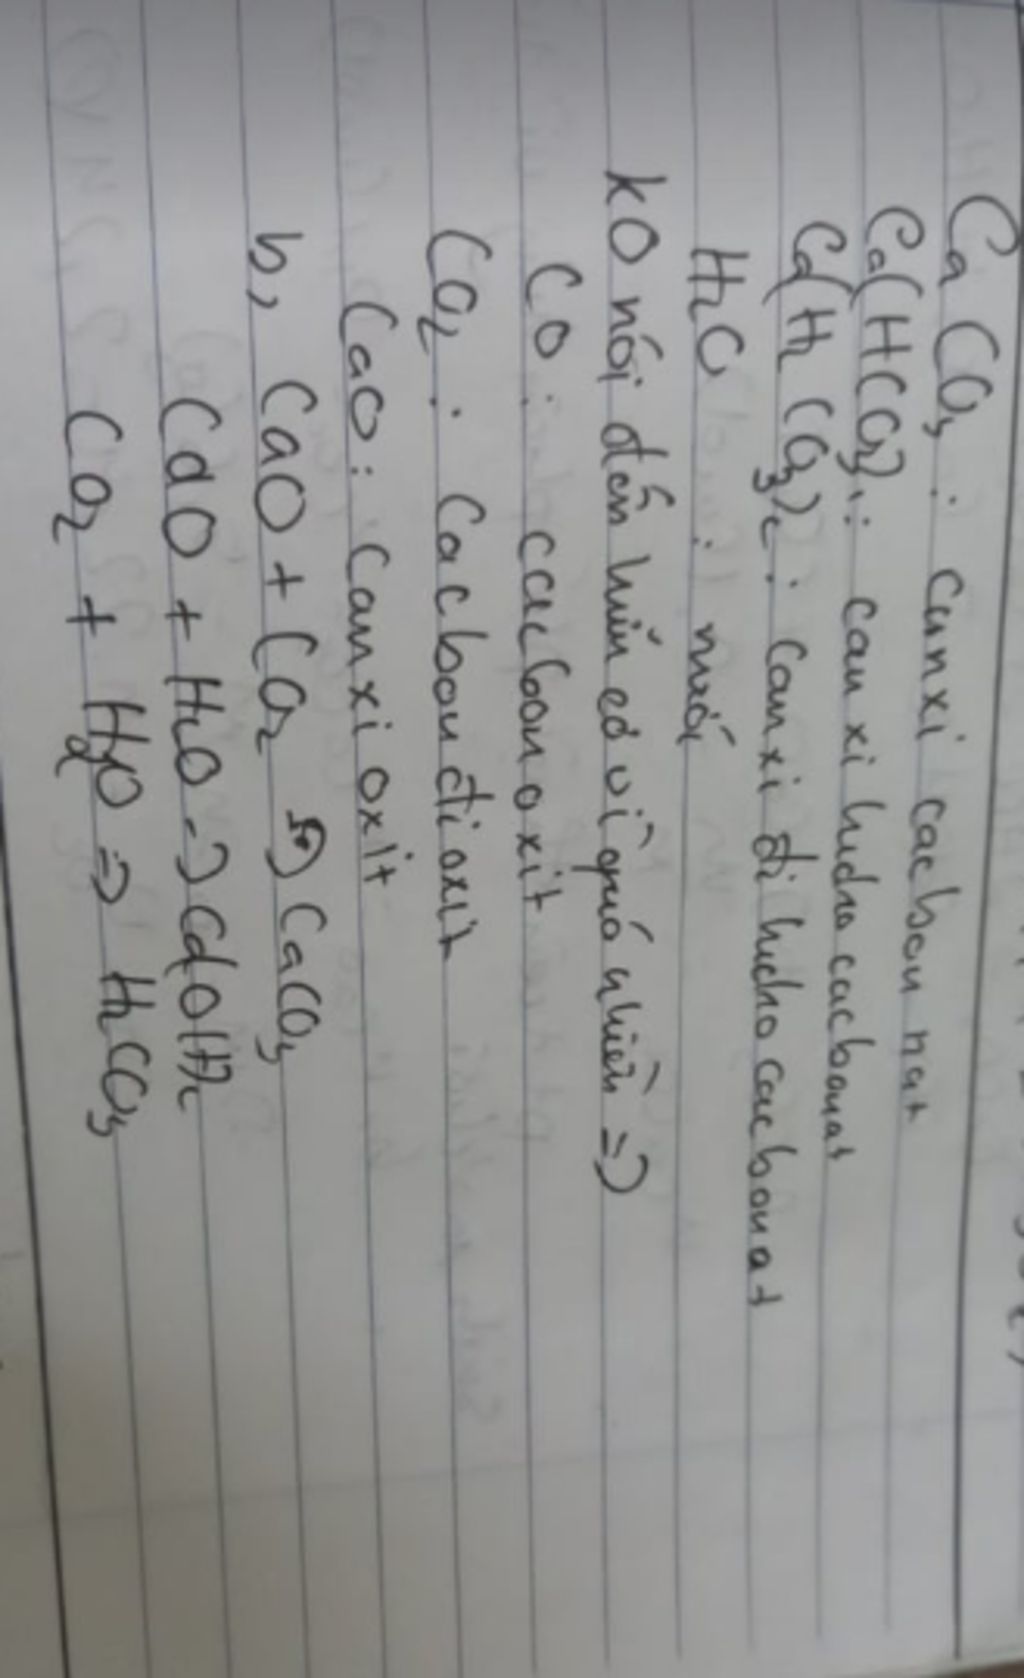 CaCO3 : canxi cacbon nat
Ca(HCO3)2 : canxi hidro cacbonat
Ca(H2CO3)2 : canxi đi hidro cacbonat
H2O : nước
kO nói đến hiđn eđ vì quá nhiều =>
CO : cacbon oxit
CO2 : cacbon đi oxit
CaO : canxi oxit
b, CaO + CO2 => CaCO3
CaO + H2O -> Ca(OH)2
CO2 + H2O => H2CO3